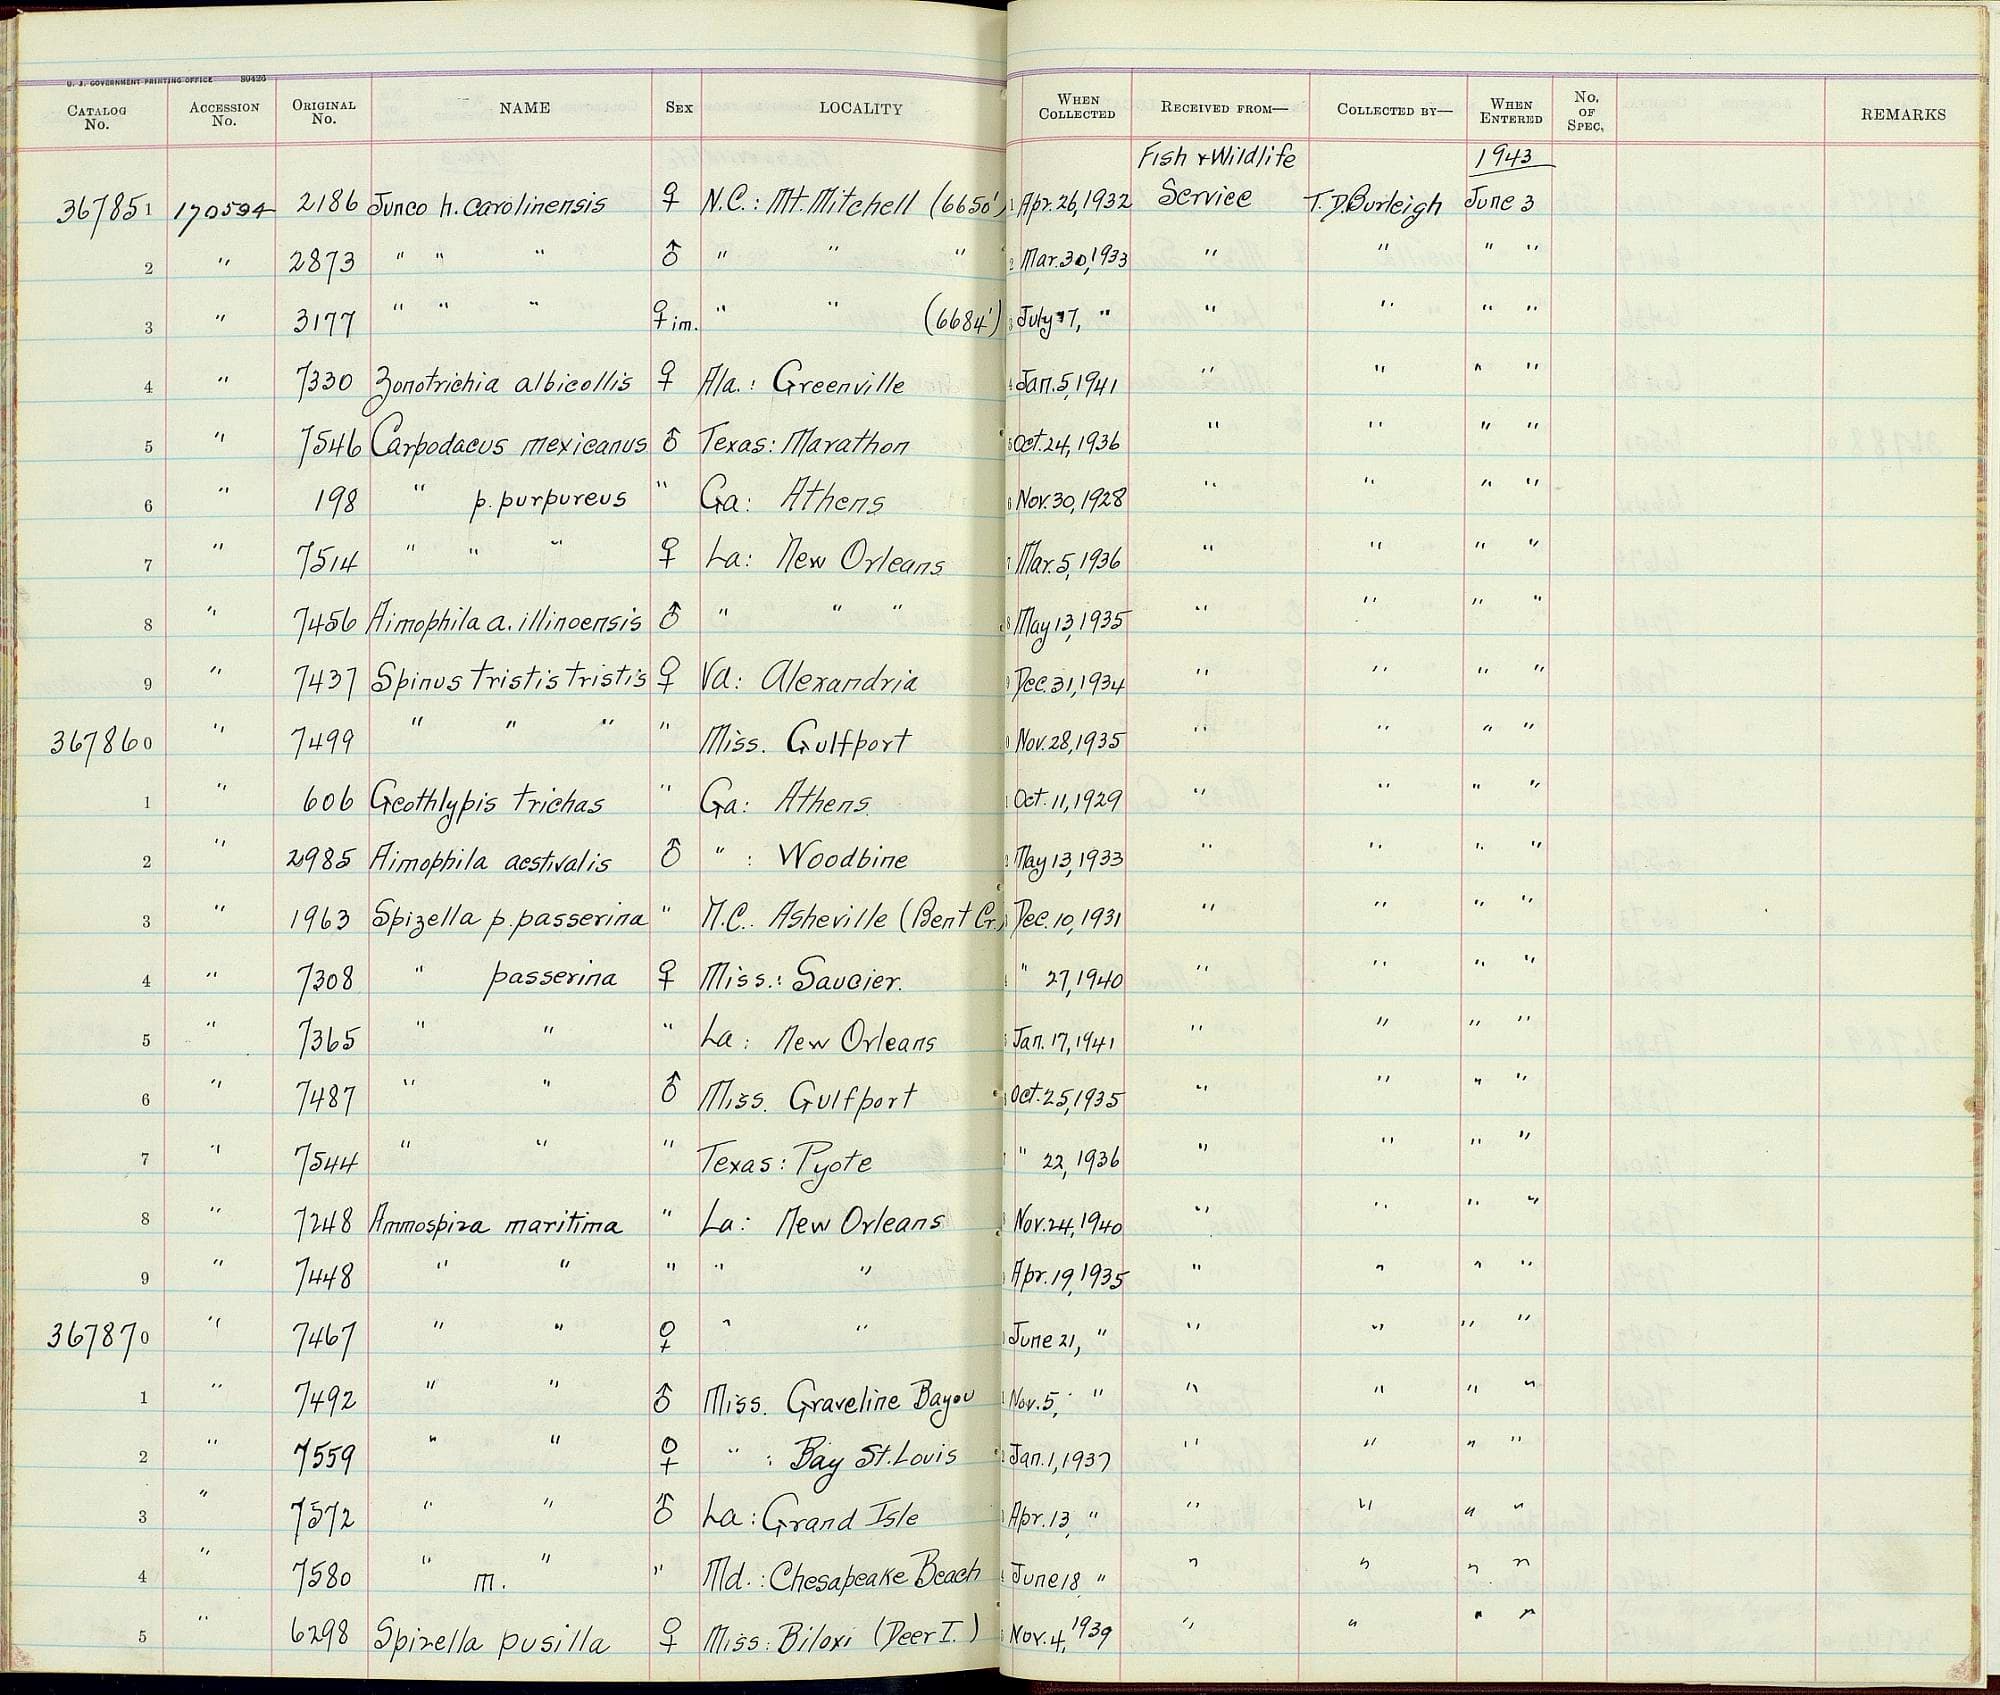 U. S. GOVERNMENT PRINTING OFFICE 89426
CATALOG No. ACCESSION No. ORIGINAL No. NAME SEX LOCALITY WHEN COLLECTED RECEIVED FROM— COLLECTED BY— WHEN ENTERED No. OF SPEC. REMARKS
Fish & Wildlife 1943
367851 170594 2186 Junco h. carolinensis ♀ N.C.: Mt. Mitchell (6650') 1 Apr. 26, 1932 Service T.D. Burleigh June 3
2 " 2873 " " " ♂ " " " 2 Mar. 30, 1933 " " " "
3 " 3177 " " " ♀ im. " " (6684') 3 July 7, " " " " "
4 " 7330 Zonotrichia albicollis ♀ Ala.: Greenville 4 Jan. 5, 1941 " " " "
5 " 7546 Carpodacus mexicanus ♂ Texas: Marathon 5 Oct. 24, 1936 " " " "
6 " 198 " p. purpureus " Ga: Athens 6 Nov. 30, 1928 " " " "
7 " 7514 " " " ♀ La: New Orleans 7 Mar. 5, 1936 " " " "
8 " 7456 Aimophila a. illinoensis ♂ " " " 8 May 13, 1935 " " " "
9 " 7437 Spinus tristis tristis ♀ Va: Alexandria 9 Dec. 31, 1934 " " " "
367860 " 7499 " " " " Miss. Gulfport 0 Nov. 28, 1935 " " " "
1 " 606 Geothlypis trichas " Ga: Athens 1 Oct. 11, 1929 " " " "
2 " 2985 Aimophila aestivalis ♂ " : Woodbine 2 May 13, 1933 " " " "
3 " 1963 Spizella p. passerina " N.C. Asheville (Bent Cr.) 3 Dec. 10, 1931 " " " "
4 " 7308 " passerina ♀ Miss.: Saucier. 4 " 27, 1940 " " " "
5 " 7365 " " " La: New Orleans 5 Jan. 17, 1941 " " " "
6 " 7487 " " ♂ Miss. Gulfport 6 Oct. 25, 1935 " " " "
7 " 7544 " " " Texas: Pyote 7 " 22, 1936 " " " "
8 " 7248 Ammospiza maritima " La: New Orleans 8 Nov. 24, 1940 " " " "
9 " 7448 " " " " " 9 Apr. 19, 1935 " " " "
367870 " 7467 " " ♀ " " 0 June 21, " " " " "
1 " 7492 " " ♂ Miss. Graveline Bayou 1 Nov. 5, " " " " "
2 " 7559 " " ♀ " : Bay St. Louis 2 Jan. 1, 1937 " " " "
3 " 7572 " " ♂ La: Grand Isle 3 Apr. 13, " " " " "
4 " 7580 " m. " " Md.: Chesapeake Beach 4 June 18 " " " " "
5 " 6298 Spizella pusilla ♀ Miss: Biloxi (Deer I.) 5 Nov. 4, 1939 " " " "